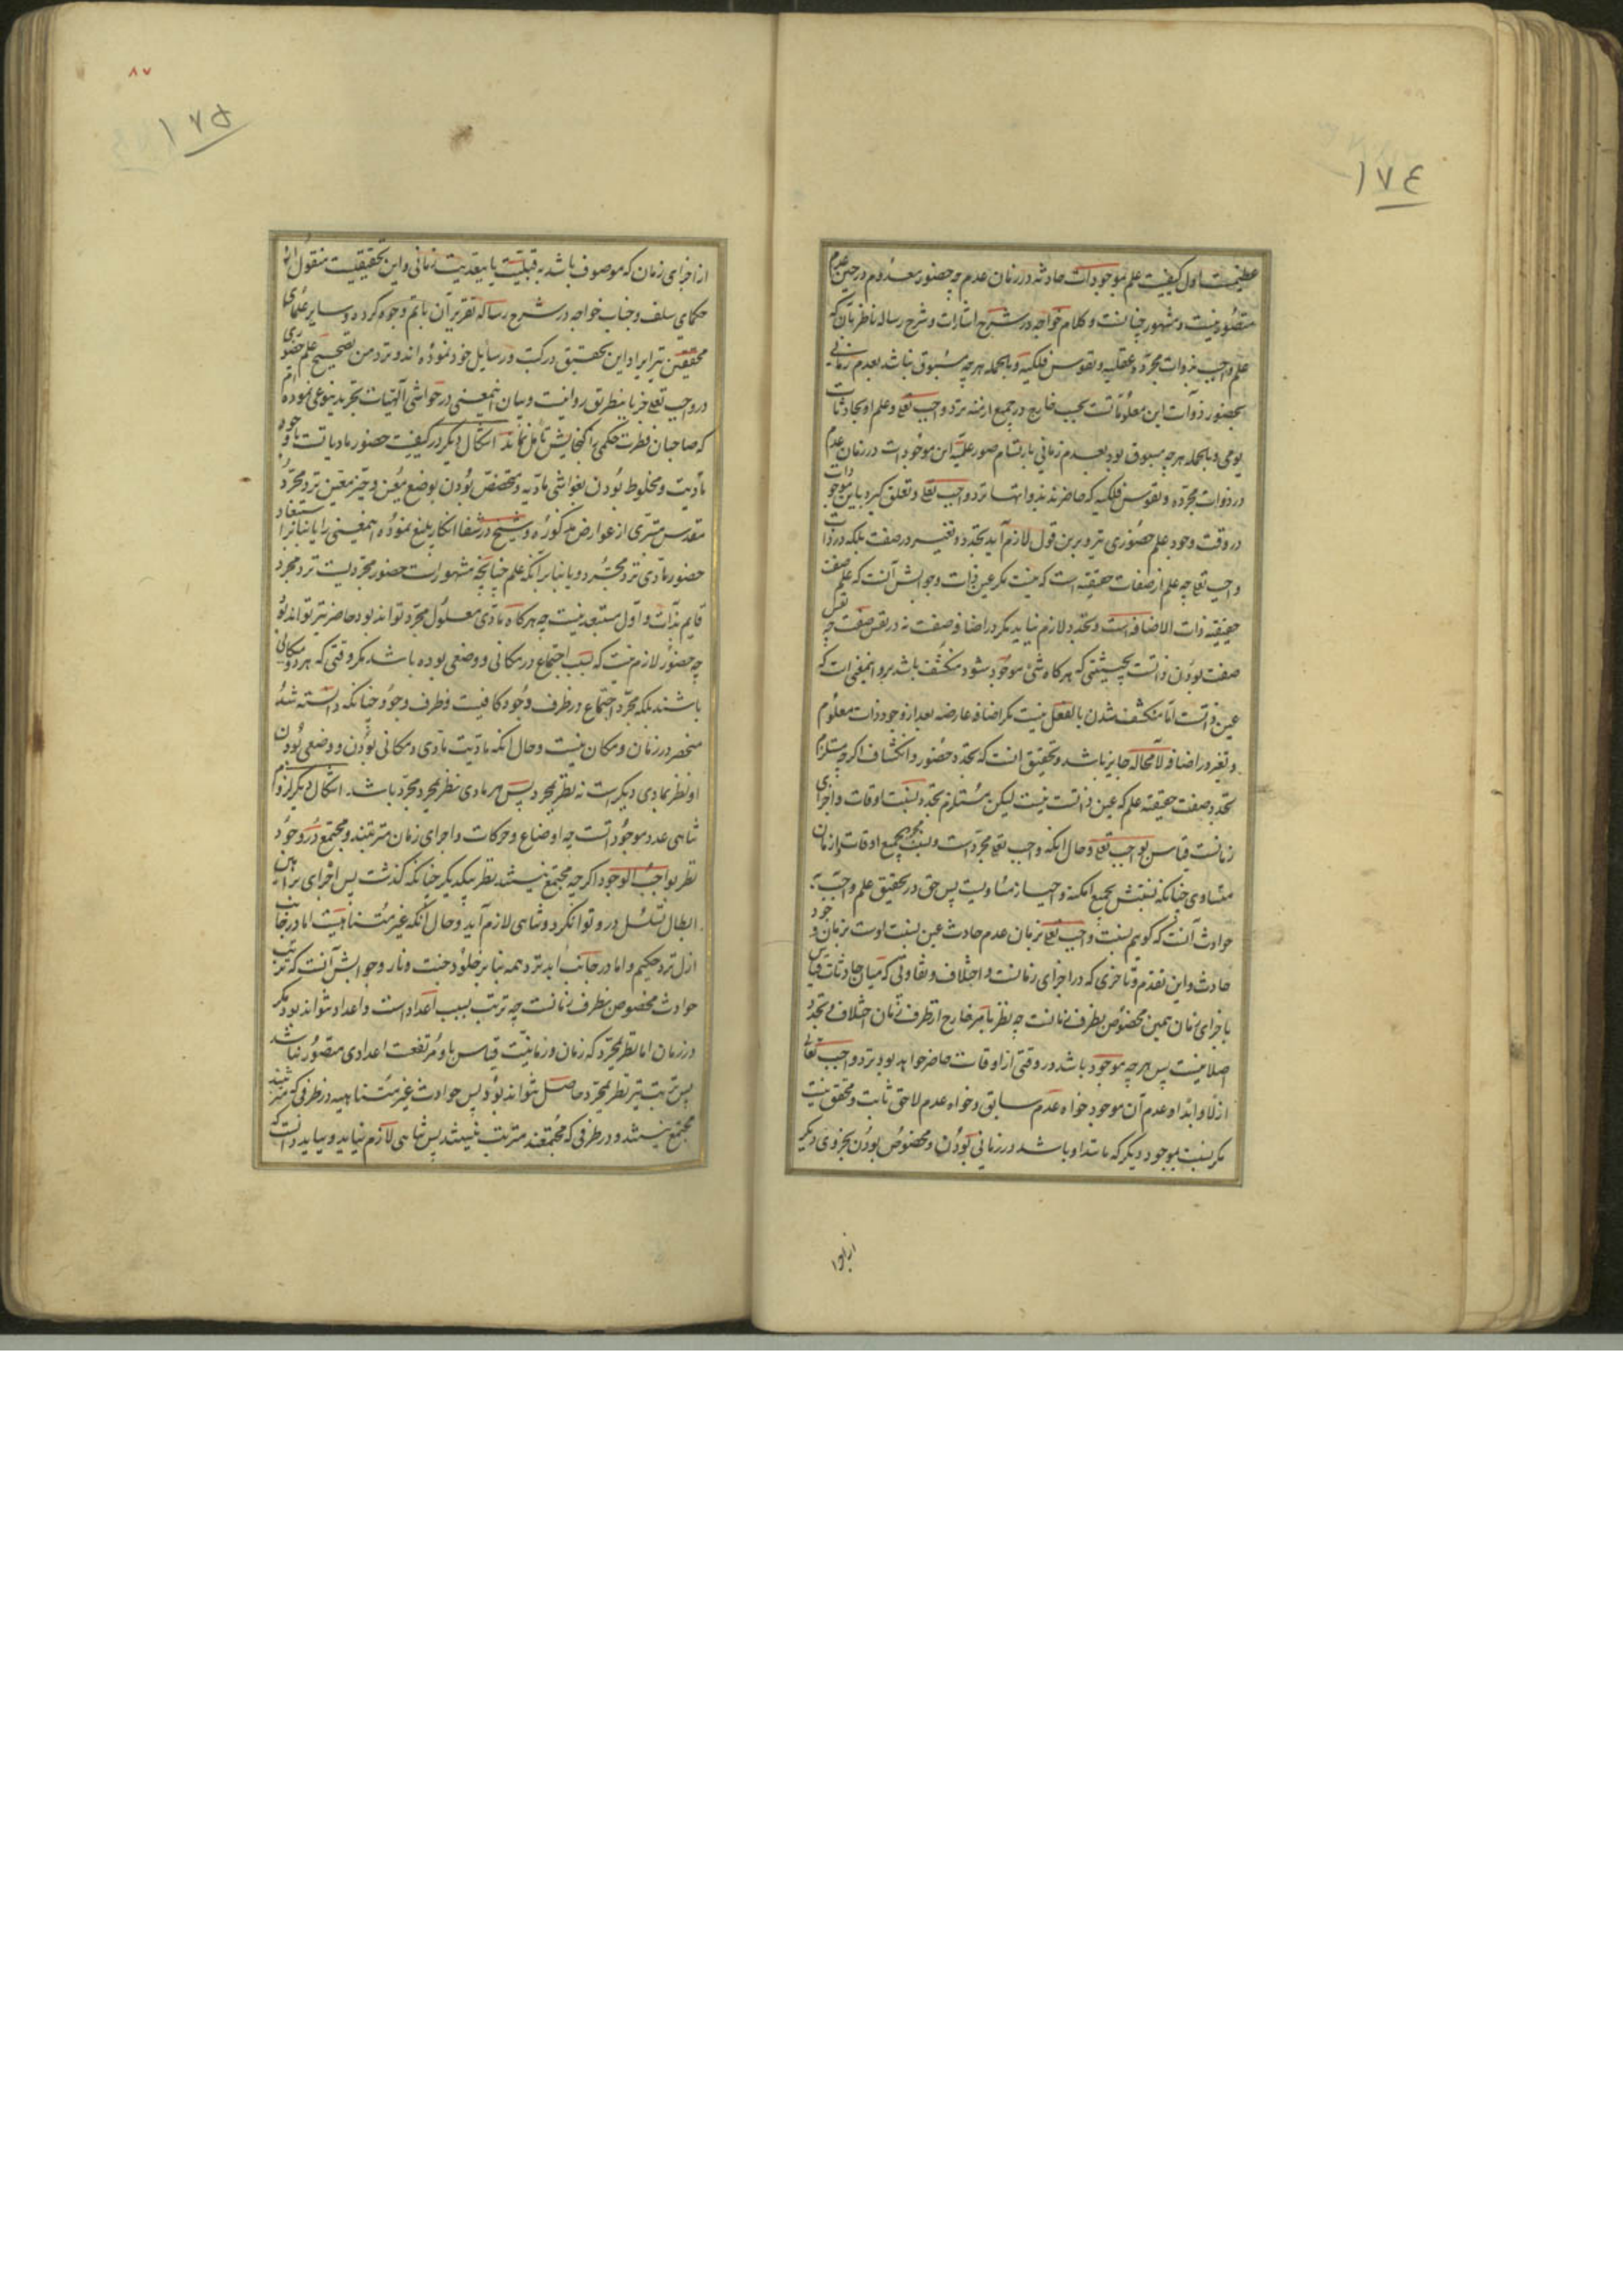 ١٧٤
عظیمست اول کیفیت علم بموجودات حادثه در زمان عدم چه حضور معدوم در حین عدم
متصور نیست و مشهور چنانست و کلام خواجه در شرح اشارات و شرح رساله ناظر بآن که
علم واجب بذوات مجرده عقلیه و نفوس فلکیه و بالجمله هر چه مسبوق نباشد بعدم زمانی
بحضور ذوات این معلوماتست بحسب خارج در جمیع ازمنه نزد واجب تعالی و علم او بحادثات
یومی و بالجمله هر چه مسبوق بود بعدم زمانی بارتسام صور علمیه این موجوداتست در زمان عدم
در ذوات مجرده و نفوس فلکیه که حاضرند بذواتها نزد واجب تعالی و تعلق گیرد باین موجودات
در وقت وجود علم حضوری نیز و برین قول لازم آید تجدد و تغییر در صفت بلکه در ذات
واجب تعالی چه علم از صفات حقیقیه است که نیست مگر عین ذات و جوابش آنست که علم صفت
حقیقیه ذات الاضافه است و تجدد لازم نیاید مگر در اضافه صفت نه در نفس صفت چه نفس
صفت بودن ذاتست بحیثیتی که هر گاه شئ موجود شود منکشف باشد برو و اینمعنی است که
عین ذاتست اما منکشف شدن بالفعل نیست مگر اضافه عارضه بعد از وجود ذات معلوم
و تغیر در اضافه لامحاله جایز باشد و تحقیق آنست که تجدد حضور و انکشاف اگر چه مستلزم
تجدد صفت حقیقیه علم که عین ذاتست نیست لیکن مستلزم تجدد نسبت اوقات و اجزای
زمانست قیاس بواجب تعالی و حال آنکه واجب تعالی مجرد است و نسبت مجرد بجمیع اوقات و ازمان
مساوی چنانکه نسبتش بجمیع امکنه و احیاز مساویست پس حق در تحقیق علم واجب به
حوادث آنست که گوییم نسبت واجب تعالی بزمان عدم حادث عین نسبت اوست بزمان وجود
حادث و این تقدم و تاخری که در اجزای زمانست و اختلاف و تفاوتی که میان حادثات قیاس
باجزای زمان همین مخصوص بظرف زمانست چه نظر بامر خارج از ظرف زمان اختلاف و تجدد
اصلا نیست پس هر چه موجود باشد در وقتی از اوقات حاضر خواهد بود نزد واجب تعالی
ازلا و ابدا و عدم آن موجود خواه عدم سابق و خواه عدم لاحق ثابت و محقق نیست
مگر نسبت بموجود دیگر که مانند او باشد در زمانی بودن و مخصوص بودن بجزوی دیگر
از اجزا
٨٧
١٧٥
از اجزای زمان که موصوف باشد به قبلیت یا بعدیت زمانی و این تحقیقیست منقول از
حکمای سلف و جناب خواجه در شرح رساله تقریر آن باتم وجوه کرده و سایر علمای
محققین نیز ایراد این تحقیق در کتب و رسایل خود نموده اند و نزد من تصحیح علم حضوری
در واجب تعالی جز باینطریق روا نیست و بیان اینمعنی در حواشی الهیات تجرید بنوعی نموده ام
که صاحبان فطرت حکمی را گنجایش تامل نماند اشکال دیگر در کیفیت حضور مادیاتست با وجود
مادیت و مخلوط بودن بغواشی مادیه و مختص بودن بوضع معین و حیز معین نزد مجرد
مقدس متبری از عوارض مذکوره و شیخ در شفا انکار بلیغ نموده اینمعنی را یا بنابر استبعاد
حضور مادی نزد مجرد و یا بنابر آنکه علم چنانچه مشهور است حضور مجردیست نزد مجرد
قایم بذات و اول مستبعد نیست چه هر گاه مادی معلول مجرد تواند بود حاضر نیز تواند بود
چه حضور لازم نیست که بسبب اجتماع در مکانی و وضعی بوده باشد مگر وقتی که هر دو مکانی
باشند بلکه مجرد اجتماع در ظرف وجود کافیست و ظرف وجود چنانکه دانسته شد
منحصر در زمان و مکان نیست و حال آنکه مادیت مادی و مکانی بودن و وضعی بودن
او نظر بمادی دیگر است نه نظر بمجرد پس هر مادی نظر بمجرد مجرد باشد. اشکال دیگر لزوم
تناهی عدد موجوداتست چه اوضاع و حرکات و اجزای زمان مترتبند و مجتمع در وجود
نظر بواجب الوجود اگر چه مجتمع نیستند نظر بیکدیگر چنانکه گذشت پس اجرای براهین
ابطال تسلسل درو توان کرد و تناهی لازم آید و حال آنکه غیر متناهیست اما در جانب
ازل نزد حکیم و اما در جانب ابد نزد همه بنابر خلود جنت و نار و جوابش آنست که ترتب
حوادث مخصوص بظرف زمانست چه ترتب بسبب اعداد است و اعداد نتواند بود مگر
در زمان اما نظر بمجرد که زمان و زمانیت قیاس باو مرتفعست اعدادی متصور نباشد
پس ترتب نیز نظر بمجرد حاصل نتواند بود پس حوادث غیر متناهیه در ظرفی که مترتبند
مجتمع نیستند و در ظرفی که مجتمعند مترتب نیستند پس تناهی لازم نیاید و بباید دانست که